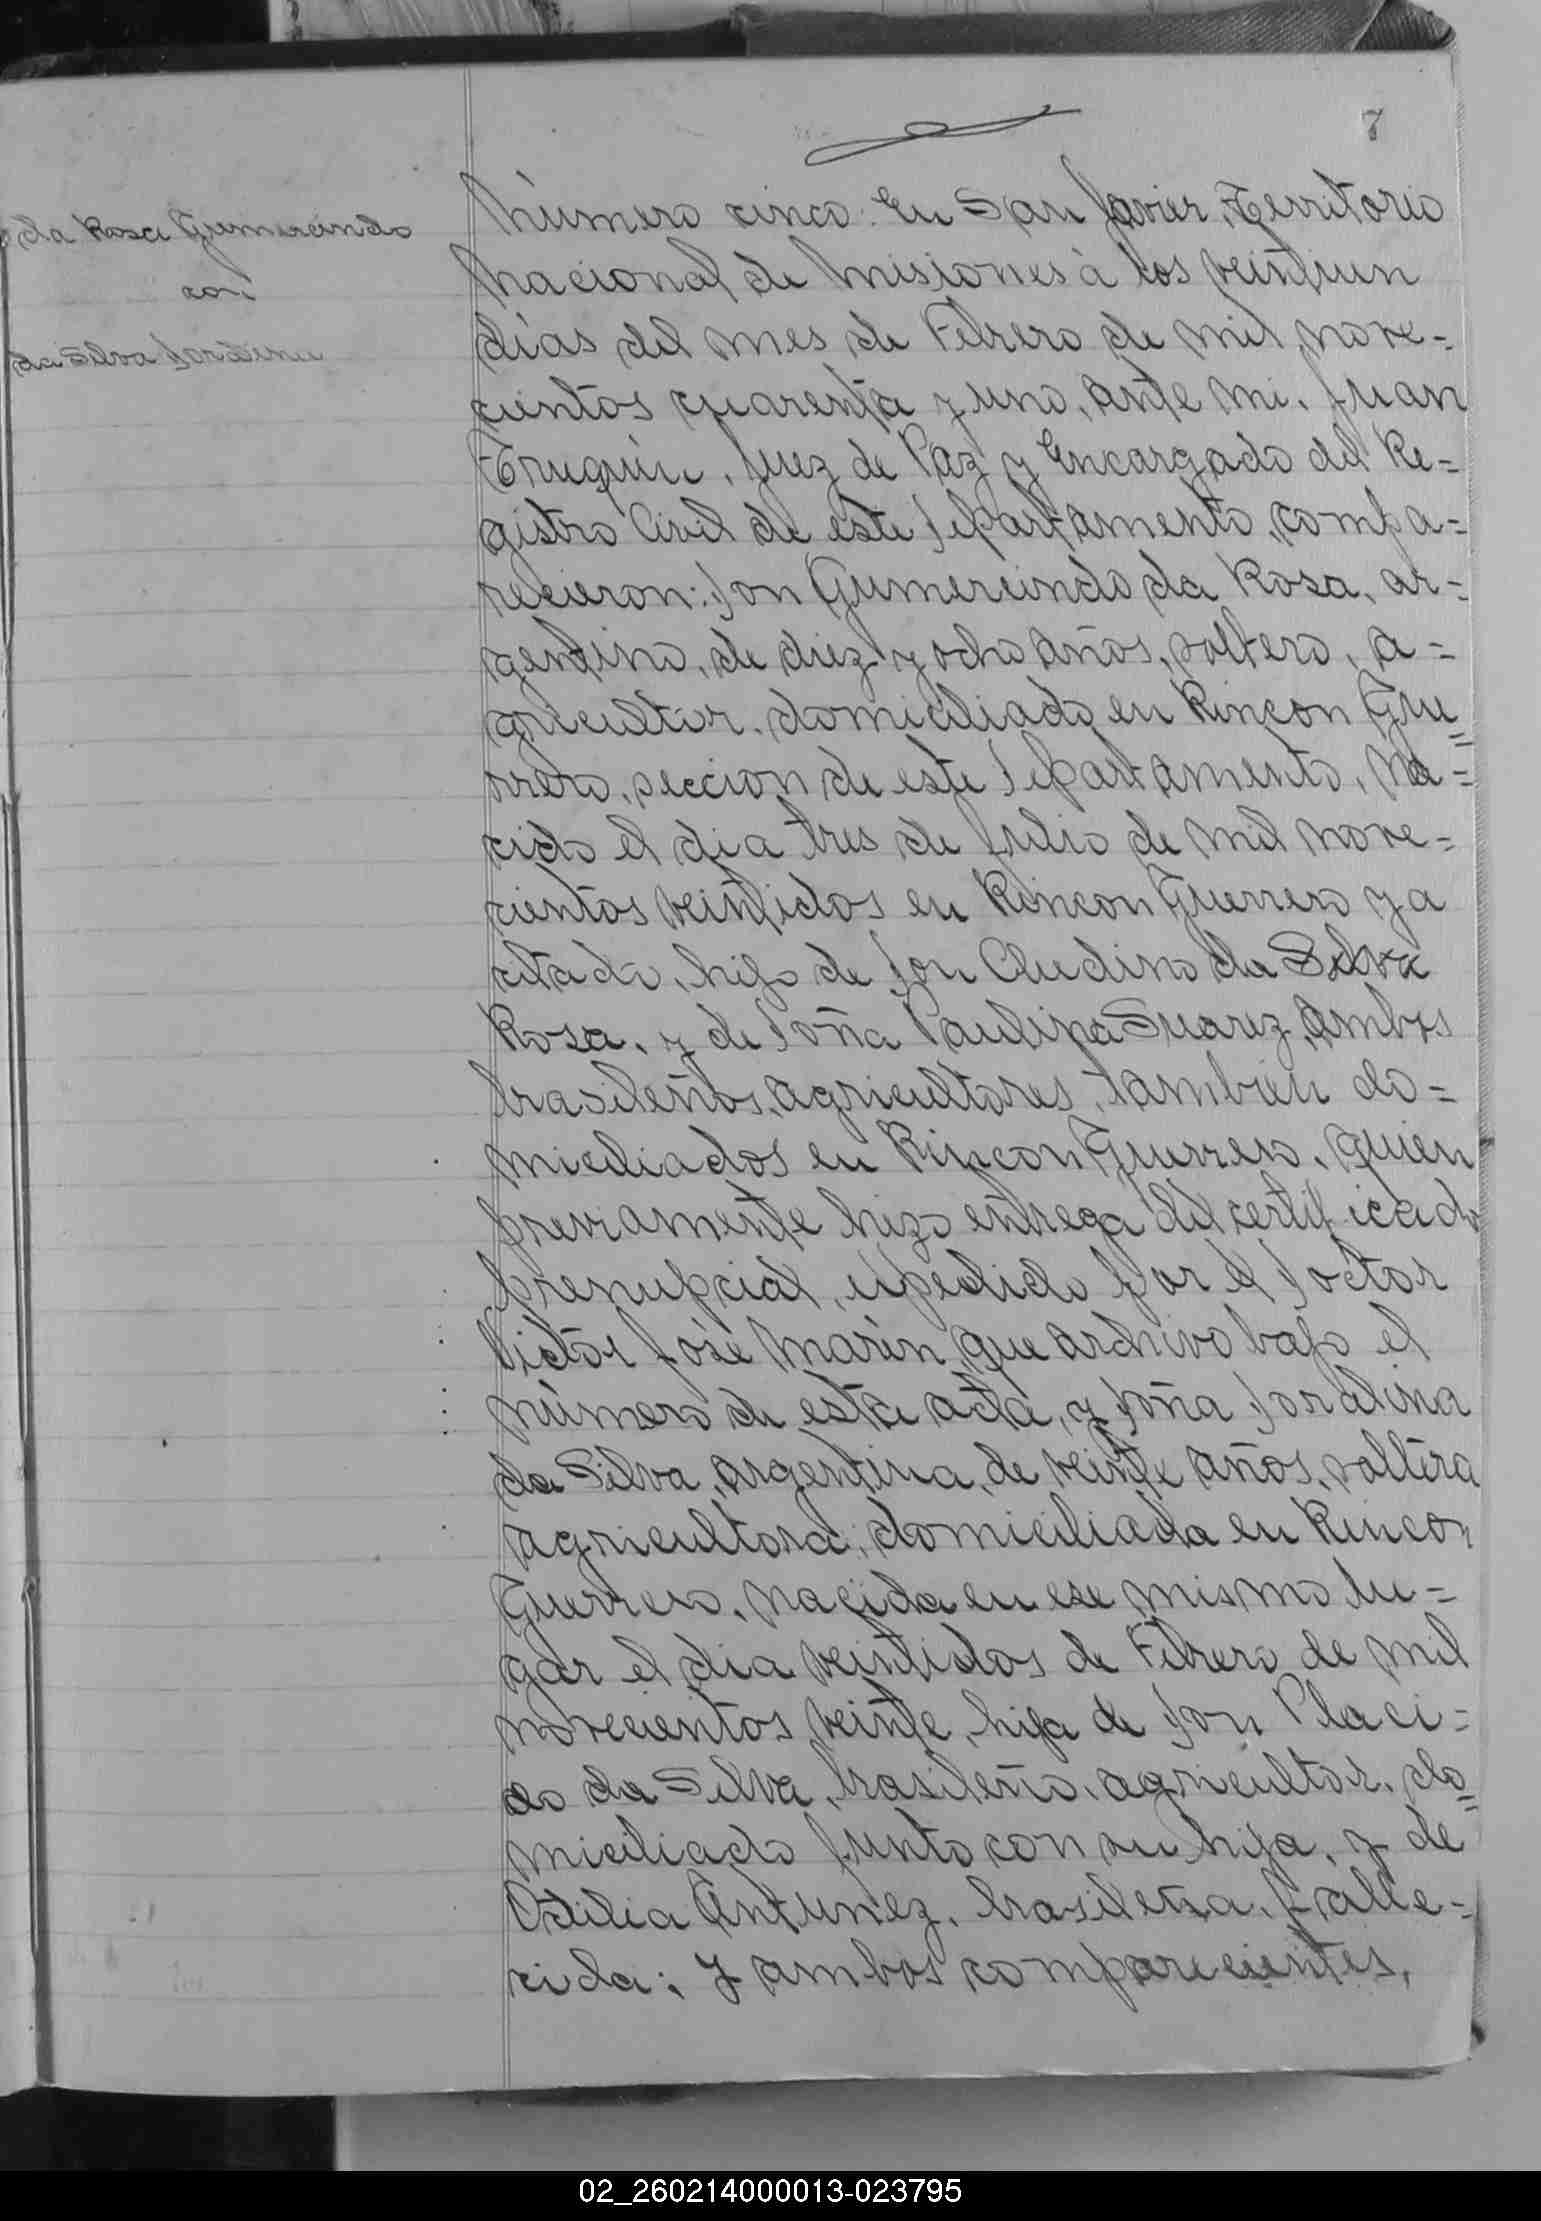 7
da Rosa Gumercindo
con
da Silva Jordina
Número cinco: En San Javier, Territorio
Nacional de Misiones à los veintiun
días del mes de Febrero de mil nove=
cientos cuarenta y uno, ante mi, Juan
Juez de Paz y Encargado del Re=
gistro Civil de este Departamento, compa=
recieron: Don Gumercindo da Rosa, ar=
gentino, de diez y ocho años, soltero, a=
gricultor, domiciliado en Rincon Gue=
rrero, seccion de este Departamento, na=
cido el dia tres de Julio de mil nove=
cientos veintidos en Rincon Guerrero ya
citado, hijo de Don Cludino da Silva
Rosa, y de Doña Paulina Suarez, ambos
brasileños, agricultores, tambien do=
miciliados en Rincon Guerrero, quien
previamente hizo entrega del certificado
prenupcial, expedido por el Doctor
Victor José Marin, que archivo bajo el
número de esta acta, y Doña Jordina
da Silva, argentina, de veinte años, soltera
agricultora, domiciliada en Rincon
Guerrero, nacida en ese mismo lu=
gar el dia veintidos de Febrero de mil
novecientos veinte, hija de Don Placi=
do da Silva, brasileño, agricultor, do=
miciliado junto con su hija, y de
Odilia Antunez, brasileña, falle=
cida; y ambos comparecientes,
02_260214000013-023795